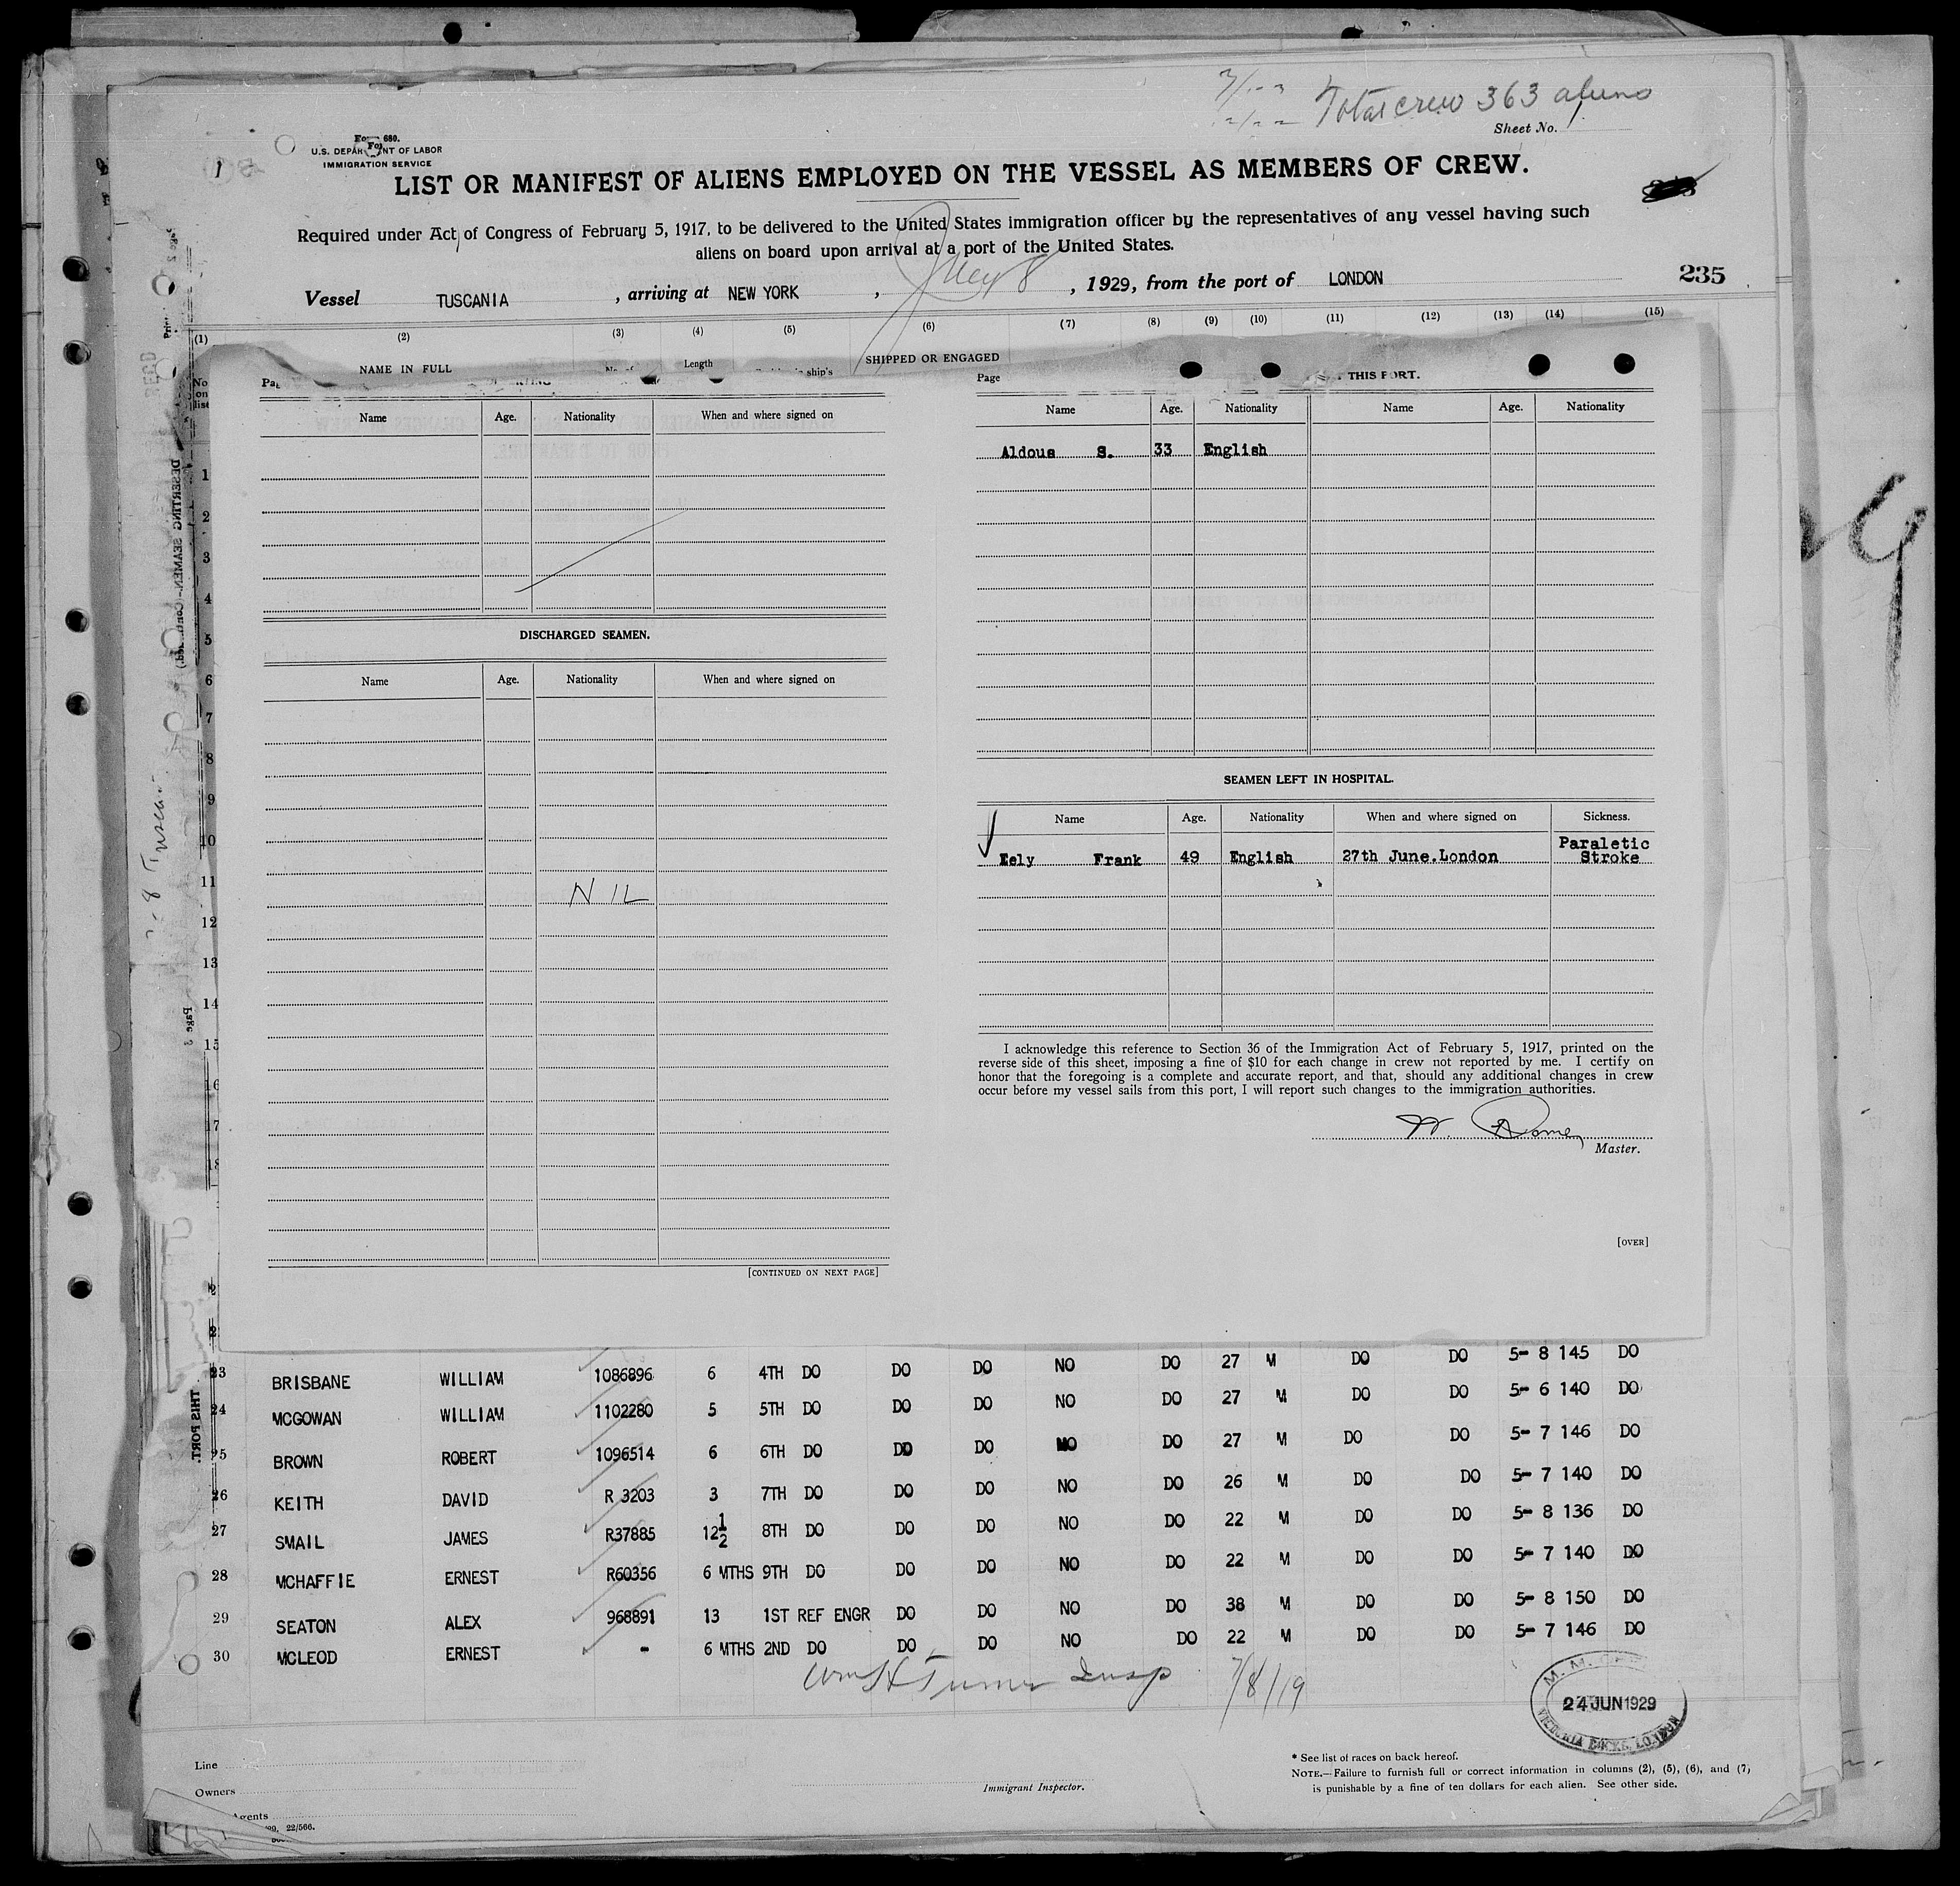 Total crew 363 aliens
Sheet No. 1
U.S. DEPARTMENT OF LABOR
IMMIGRATION SERVICE
1
LIST OR MANIFEST OF ALIENS EMPLOYED ON THE VESSEL AS MEMBERS OF CREW.
Required under Act of Congress of February 5, 1917, to be delivered to the United States immigration officer by the representatives of any vessel having such
aliens on board upon arrival at a port of the United States.
Vessel TUSCANIA , arriving at NEW YORK , 8 , 1929, from the port of LONDON
235
(1) (2) (3) (4) (5) (6) (7) (8) (9) (10) (11) (12) (13) (14) (15)
No on list NAME IN FULL Length ship's SHIPPED OR ENGAGED
Page THIS PORT.
Name Age. Nationality When and where signed on
Name Age. Nationality Name Age. Nationality
Aldous S. 33 English
1
2
3
4
5
DISCHARGED SEAMEN.
6
Name Age. Nationality When and where signed on
7
8
9
10
11
NIL
12
13
14
15
16
17
18
[CONTINUED ON NEXT PAGE]
SEAMEN LEFT IN HOSPITAL.
Name Age. Nationality When and where signed on Sickness.
Eely Frank 49 English 27th June.London Paraletic Stroke
I acknowledge this reference to Section 36 of the Immigration Act of February 5, 1917, printed on the
reverse side of this sheet, imposing a fine of $10 for each change in crew not reported by me. I certify on
honor that the foregoing is a complete and accurate report, and that, should any additional changes in crew
occur before my vessel sails from this port, I will report such changes to the immigration authorities.
Master.
[OVER]
23 BRISBANE WILLIAM 1086896 6 4TH DO DO DO NO DO 27 M DO DO 5- 8 145 DO
24 MCGOWAN WILLIAM 1102280 5 5TH DO DO DO NO DO 27 M DO DO 5- 6 140 DO
25 BROWN ROBERT 1096514 6 6TH DO DO DO NO DO 27 M DO DO 5- 7 146 DO
26 KEITH DAVID R 3203 3 7TH DO DO DO NO DO 26 M DO DO 5- 7 140 DO
27 SMAIL JAMES R37885 12½ 8TH DO DO DO NO DO 22 M DO DO 5- 8 136 DO
28 MCHAFFIE ERNEST R60356 6 MTHS 9TH DO DO DO NO DO 22 M DO DO 5- 7 140 DO
29 SEATON ALEX 968891 13 1ST REF ENGR DO DO NO DO 38 M DO DO 5- 8 150 DO
30 MCLEOD ERNEST - 6 MTHS 2ND DO DO DO NO DO 22 M DO DO 5- 7 146 DO
Wm H Turner Insp 7/8/19
24 JUN 1929
VICTORIA DOCKS, LONDON
Line
Owners
Agents
22/566.
Immigrant Inspector.
* See list of races on back hereof.
NOTE.—Failure to furnish full or correct information in columns (2), (5), (6), and (7),
is punishable by a fine of ten dollars for each alien. See other side.